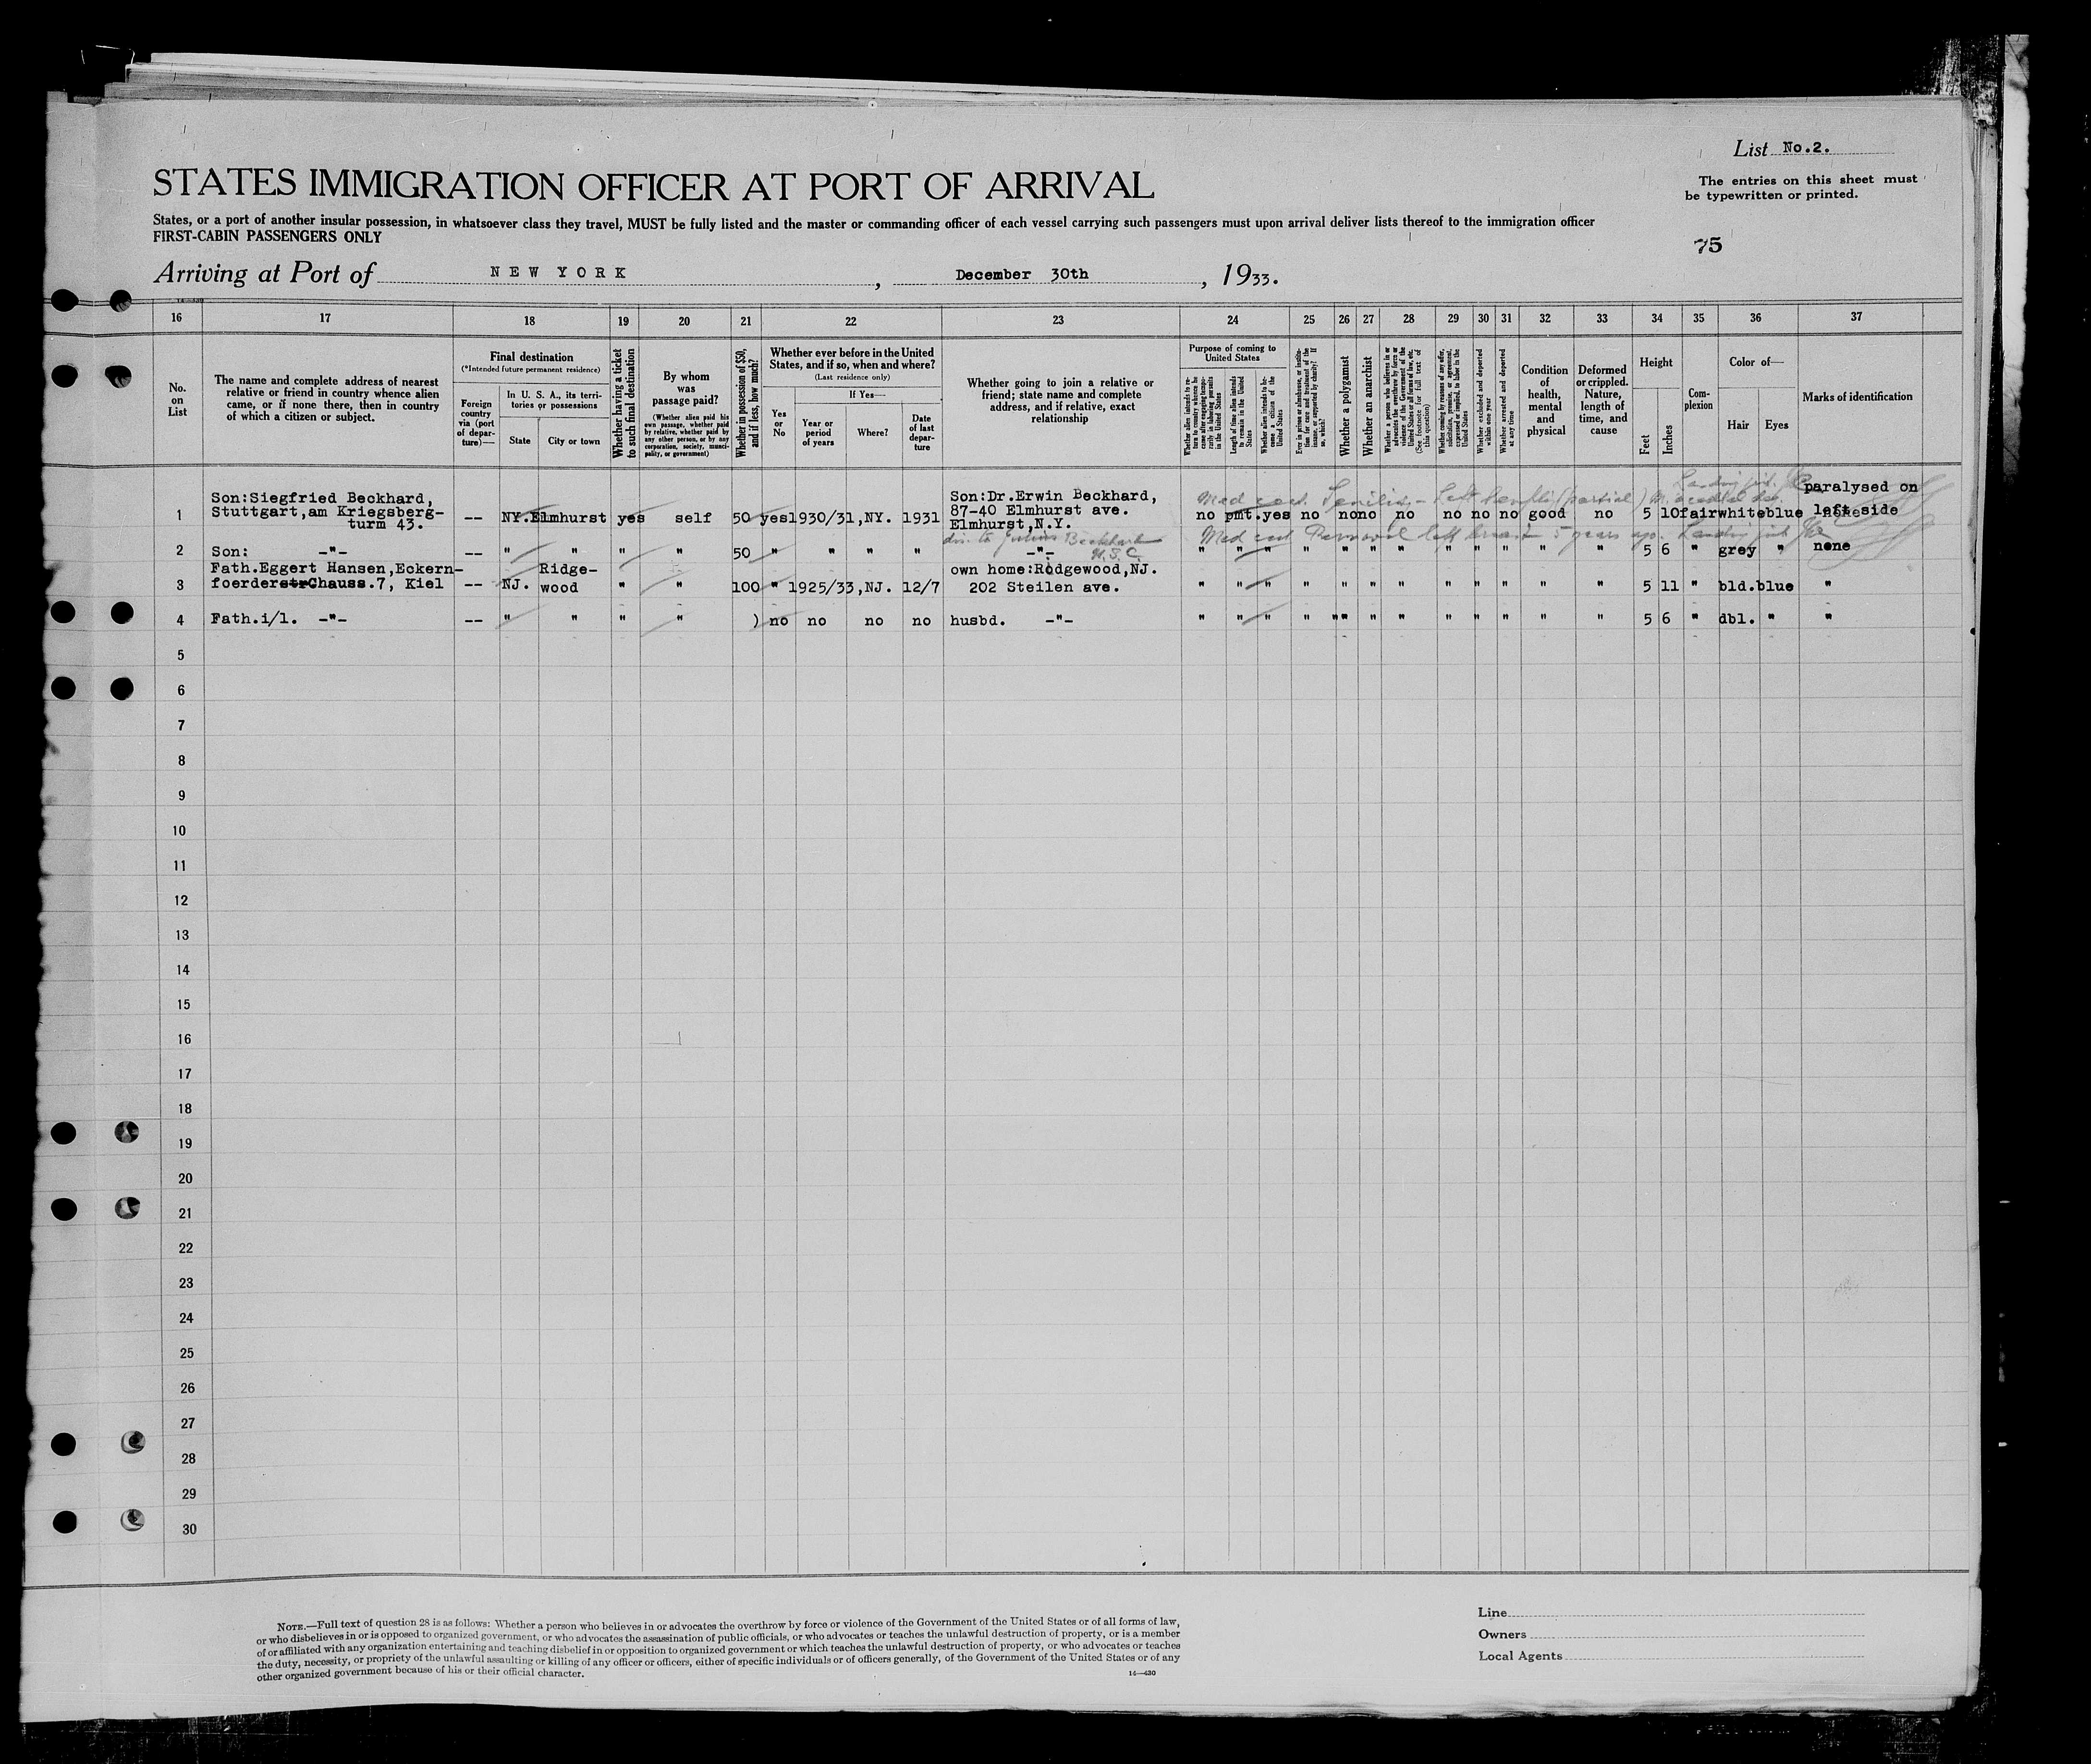 List No.2.
STATES IMMIGRATION OFFICER AT PORT OF ARRIVAL
The entries on this sheet must
be typewritten or printed.
States, or a port of another insular possession, in whatsoever class they travel, MUST be fully listed and the master or commanding officer of each vessel carrying such passengers must upon arrival deliver lists thereof to the immigration officer
FIRST-CABIN PASSENGERS ONLY
75
Arriving at Port of NEW YORK, December 30th, 1933.
16 17 18 19 20 21 22 23 24 25 26 27 28 29 30 31 32 33 34 35 36 37
No. on List
The name and complete address of nearest
relative or friend in country whence alien
came, or if none there, then in country
of which a citizen or subject.
Final destination
(*Intended future permanent residence)
Foreign country via (port of departure)—
In U. S. A., its territories or possessions
State
City or town
Whether having a ticket to such final destination
By whom was passage paid?
(Whether alien paid his own passage, whether paid by relative, whether paid by any other person, or by any corporation, society, municipality, or government)
Whether in possession of $50, and if less, how much?
Whether ever before in the United
States, and if so, when and where?
(Last residence only)
Yes or No
If Yes—
Year or period of years
Where?
Date of last departure
Whether going to join a relative or
friend; state name and complete
address, and if relative, exact
relationship
Purpose of coming to
United States
Whether alien intends to return to country whence he came after engaging temporarily in laboring pursuits in the United States
Length of time alien intends to remain in the United States
Whether alien intends to become a citizen of the United States
Ever in prison or almshouse, or institution for care and treatment of the insane, or supported by charity? If so, which?
Whether a polygamist
Whether an anarchist
Whether a person who believes in or advocates the overthrow by force or violence of the Government of the United States or all forms of law, etc. (See footnote for full text of this question)
Whether coming by reason of any offer, solicitation, promise, or agreement, expressed or implied, to labor in the United States
Whether excluded and deported within one year
Whether arrested and deported at any time
Condition of health, mental and physical
Deformed or crippled. Nature, length of time, and cause
Height
Feet
Inches
Complexion
Color of—
Hair Eyes
Marks of identification
Med cert. Senility - Left
(partial)
Son:Siegfried Beckhard,
Stuttgart,am Kriegsberg-
turm 43.
1 -- NY. Elmhurst yes self 50 yes 1930/31,NY. 1931
Son:Dr.Erwin Beckhard,
87-40 Elmhurst ave.
Elmhurst,N.Y.
no pmt. yes no no no no no no no good no 5 10 fair white blue
paralysed on
left side
Med cert Removal left breast 5 years ago.
Beckhard
U.S.C.
2 Son: -"- -- " " " " 50 " " " " -"- " " " " " " " " " " " " 5 6 " grey " none
Fath.Eggert Hansen,Eckern-
foerderstrChauss.7, Kiel
3 -- NJ. Ridge-
wood " " 100 " 1925/33,NJ. 12/7
own home:Rodgewood,NJ.
202 Steilen ave.
" " " " " " " " " " " " 5 11 " bld. blue "
4 Fath.i/l. -"- -- " " " " ) no no no no husbd. -"- " " " " " " " " " " " " 5 6 " dbl. " "
5
6
7
8
9
10
11
12
13
14
15
16
17
18
19
20
21
22
23
24
25
26
27
28
29
30
NOTE.—Full text of question 28 is as follows: Whether a person who believes in or advocates the overthrow by force or violence of the Government of the United States or of all forms of law,
or who disbelieves in or is opposed to organized government, or who advocates the assassination of public officials, or who advocates or teaches the unlawful destruction of property, or is a member
of or affiliated with any organization entertaining and teaching disbelief in or opposition to organized government or which teaches the unlawful destruction of property, or who advocates or teaches
the duty, necessity, or propriety of the unlawful assaulting or killing of any officer or officers, either of specific individuals or of officers generally, of the Government of the United States or of any
other organized government because of his or their official character.
14—430
Line
Owners
Local Agents